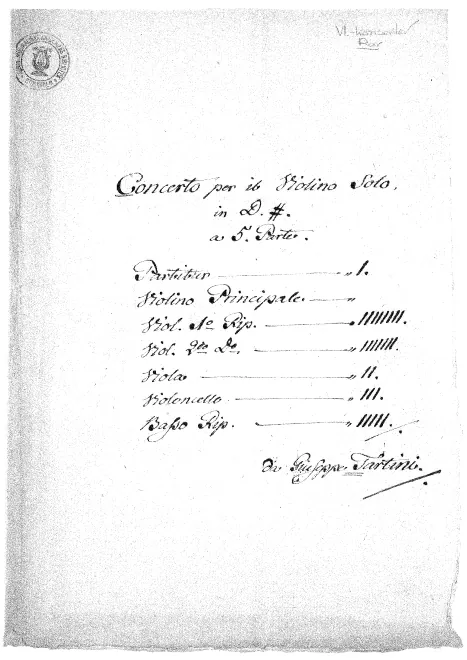 Vl.-konserter
Concerto per il Violino Solo.
in D. #.
a 5. Parte.
Partitur — „ 1.
Violino Principale. — „
Viol. 1mo Rip. — „ IIIIIIII.
Viol. 2do Do. — „ IIIIIII.
Viola — „ II.
Violoncello — „ III.
Basso Rip. — „ IIIII.
di Giuseppe Tartini.